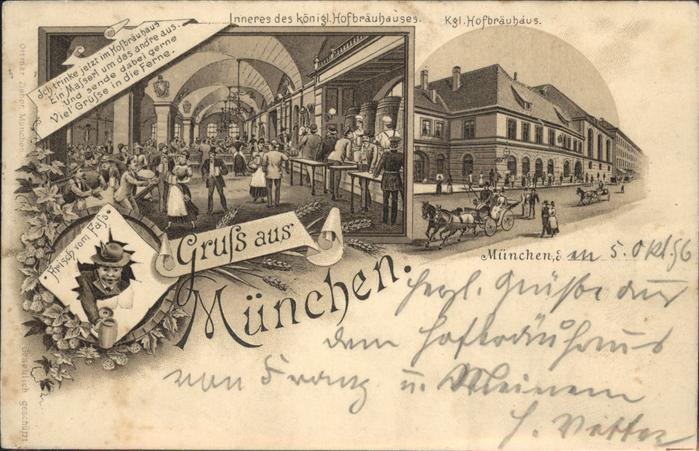 Inneres des königl. Hofbräuhauses.
Kgl. Hofbräuhaus.
Ich trinke jetzt im Hofbräuhaus
Ein Masserl um das andre aus.
Und sende dabei gerne
Viel Grüsse in die Ferne.
Ottmar Zieher, München
Frisch vom Fass.
Gruss aus
München.
München, d. 5. Okt. 96
herzl. Grüße aus
dem Hofbräuhaus
von Franz u. Meinem
gesetzlich geschützt